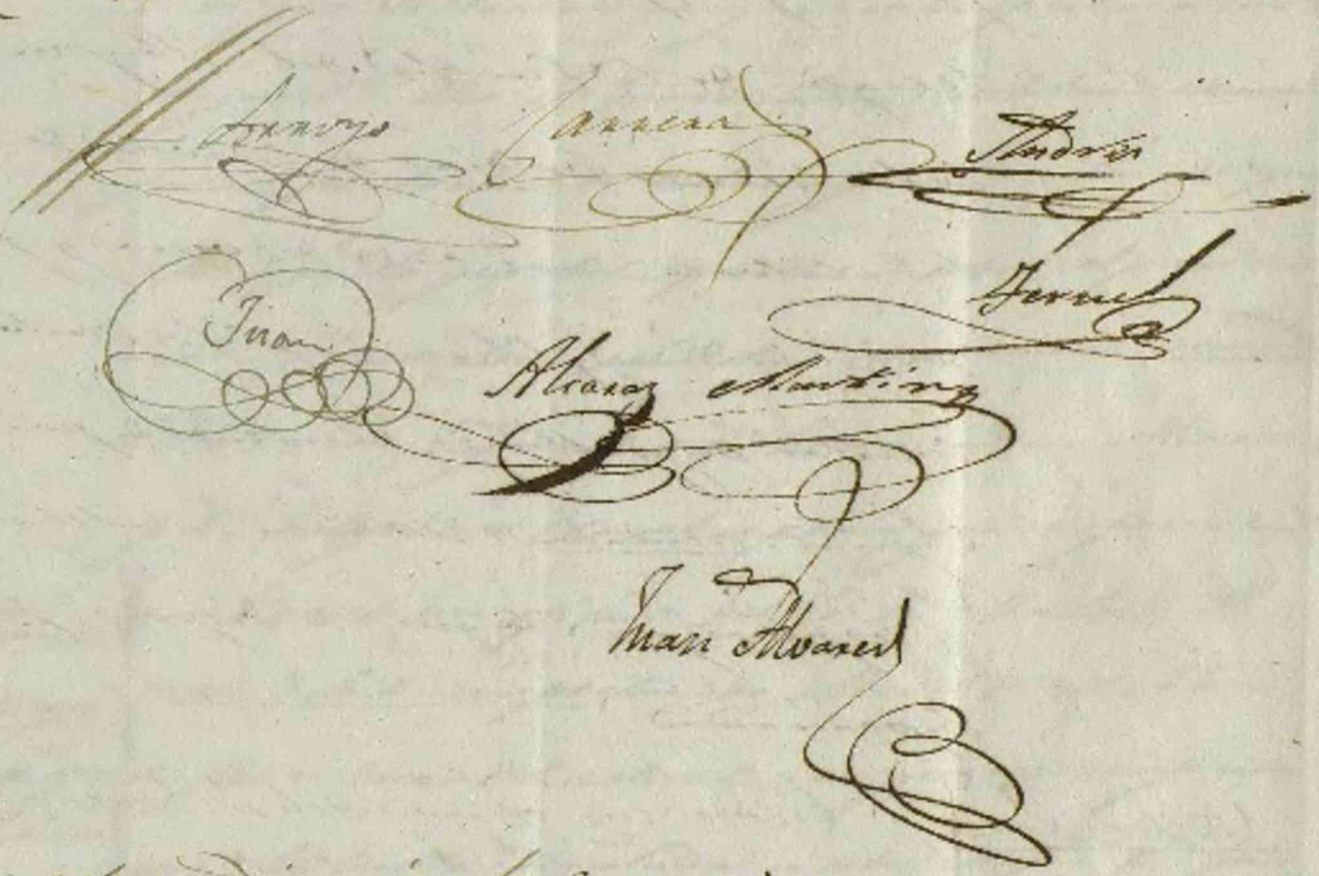 Arroyo Carrera Andres
Teruel
Juan
Alcaraz Martinz
Juan Alvarez